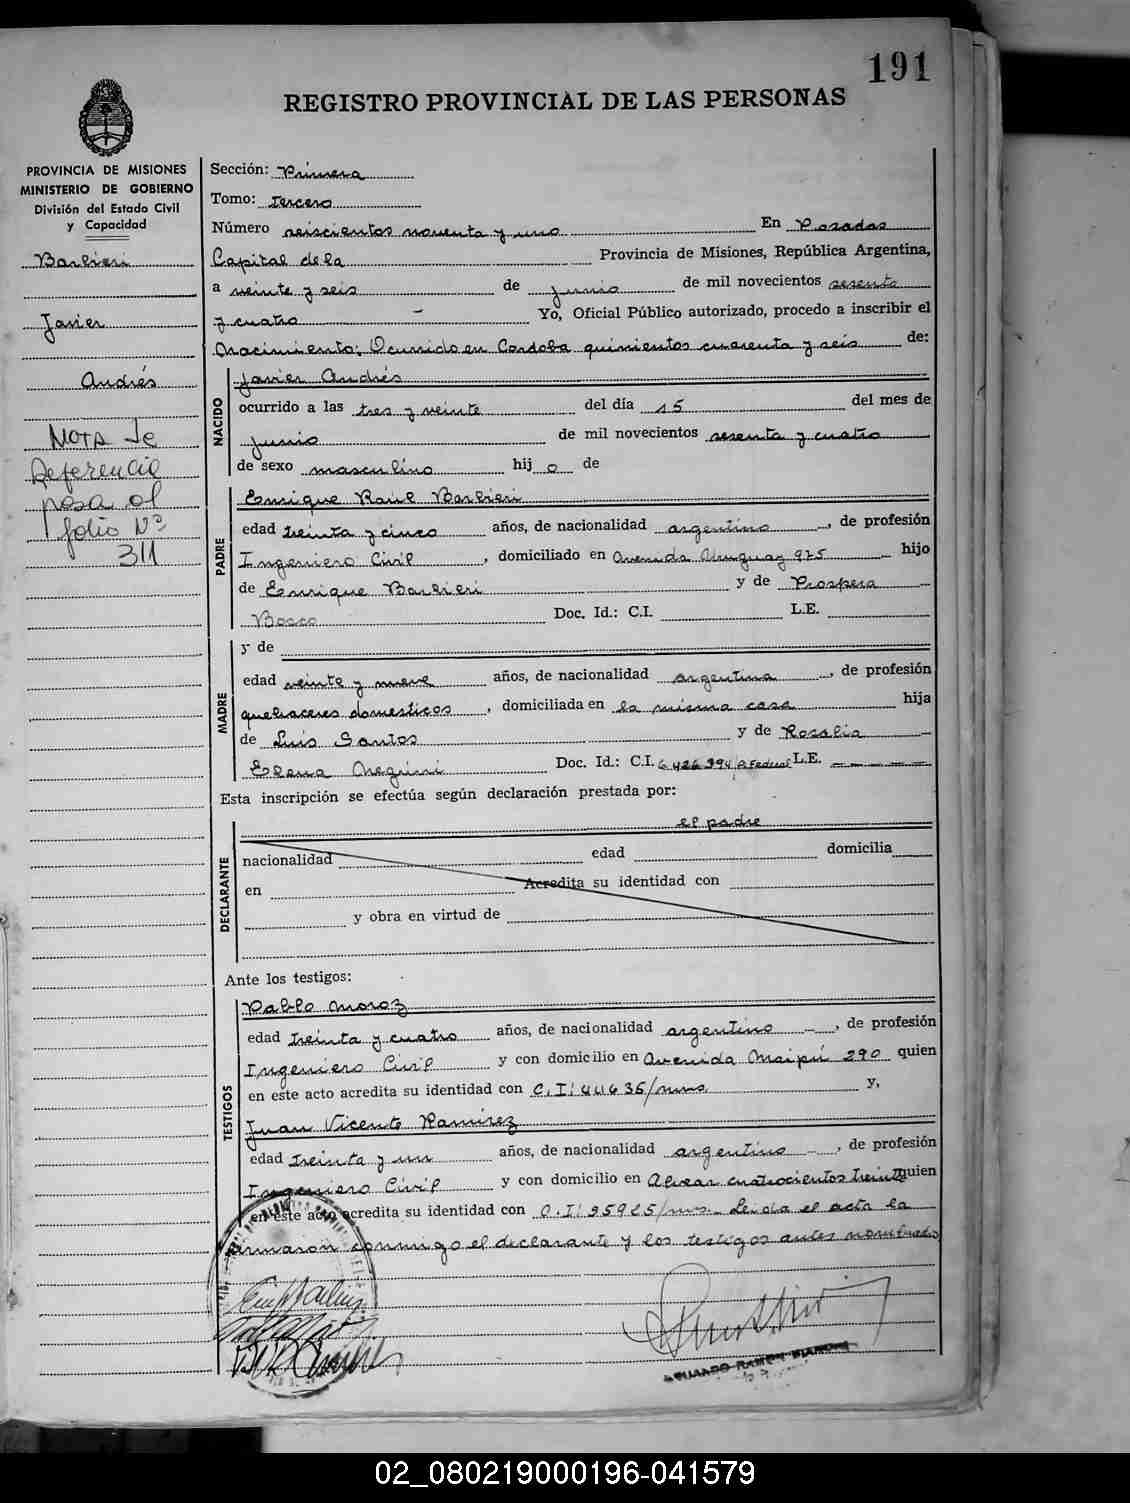 191
REGISTRO PROVINCIAL DE LAS PERSONAS
PROVINCIA DE MISIONES
MINISTERIO DE GOBIERNO
División del Estado Civil
y Capacidad
Barbieri
Javier
Andrés
NOTA de
Referencia
pasa al
folio Nº
311
Sección: Primera
Tomo: tercero
Número seiscientos noventa y uno En Posadas
Capital de la Provincia de Misiones, República Argentina,
a veinte y seis de junio de mil novecientos sesenta
y cuatro Yo, Oficial Público autorizado, procedo a inscribir el
Nacimiento: Ocurrido en Cordoba quinientos cuarenta y seis de:
NACIDO
Javier Andrés
ocurrido a las tres y veinte del día 15 del mes de
junio de mil novecientos sesenta y cuatro
de sexo masculino hij o de
PADRE
Enrique Raul Barbieri
edad treinta y cinco años, de nacionalidad argentino, de profesión
Ingeniero Civil, domiciliado en Avenida Uruguay 925 hijo
de Enrique Barbieri y de Prospera
Bosco Doc. Id.: C.I. L.E.
MADRE
y de
edad veinte y nueve años, de nacionalidad argentina, de profesión
quehaceres domesticos, domiciliada en la misma casa hija
de Luis Santos y de Rosalia
Elena Doc. Id.: C.I. P. Federal L.E. — — — —
Esta inscripción se efectúa según declaración prestada por:
el padre
DECLARANTE
nacionalidad edad domicilia
en Acredita su identidad con
y obra en virtud de
Ante los testigos:
TESTIGOS
Pablo Moroz
edad treinta y cuatro años, de nacionalidad argentino —, de profesión
Ingeniero Civil y con domicilio en Avenida Maipú 290 quien
en este acto acredita su identidad con C.I: 44635/mns. y,
Juan Vicente Ramirez
edad treinta y un años, de nacionalidad argentino —, de profesión
Ingeniero Civil y con domicilio en Alvear cuatrocientos treinta quien
en este acto acredita su identidad con C.I: 95925/mns. Leída el acta la
firmaron conmigo el declarante y los testigos antes nombrados
EDUARDO RAMON
02_080219000196-041579